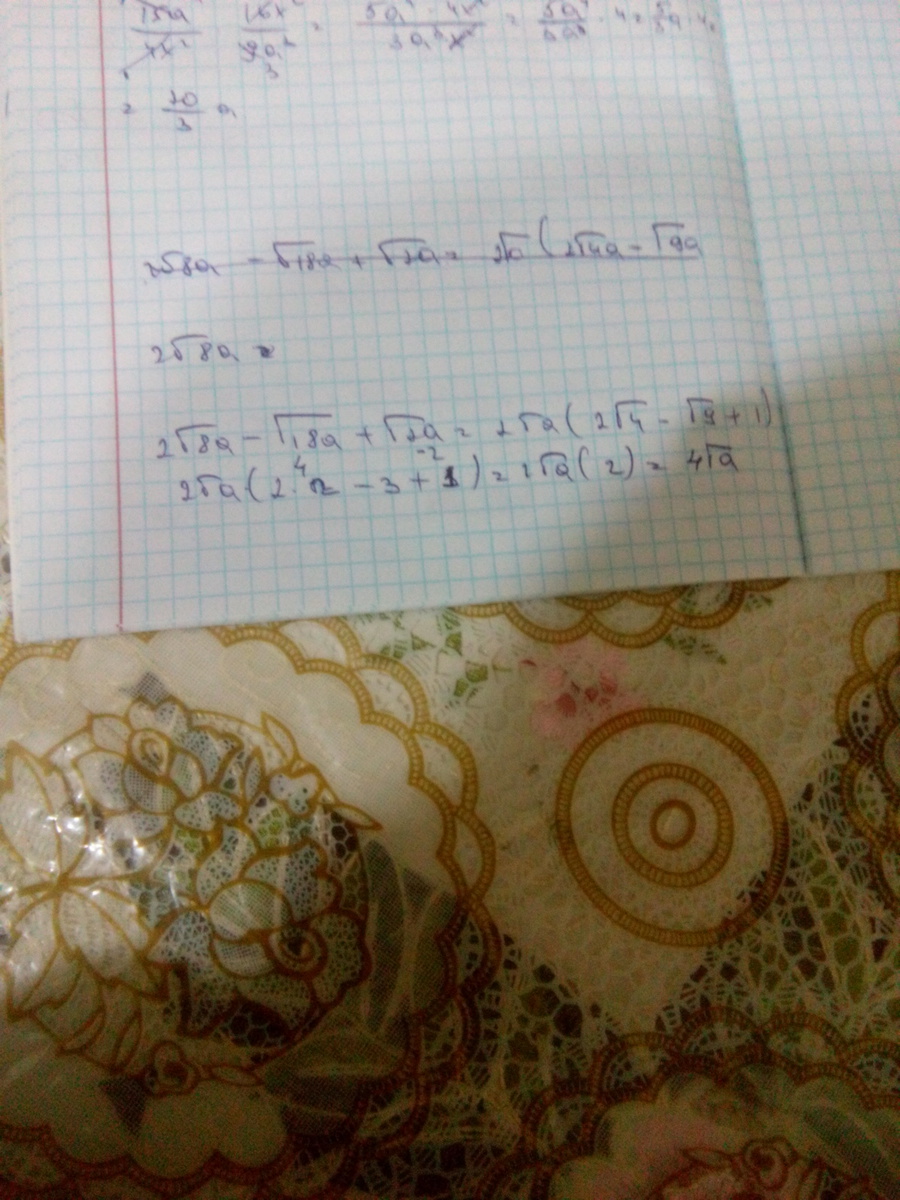 15a / 4x² 16x² / 9a² 3 = 5a · 4x² / 3a x² = 5a / 3a · 4 =
= 20/3 a
2√8a - √18a + √2a = 2√a ( 2√4a - √9a
2√8a =
2√8a - √18a + √2a = 2√a ( 2√4 - √9 + 1 )
2√a ( 2 · 2 4 - 3 + 1 -2 ) = 2√a ( 2 ) = 4√a